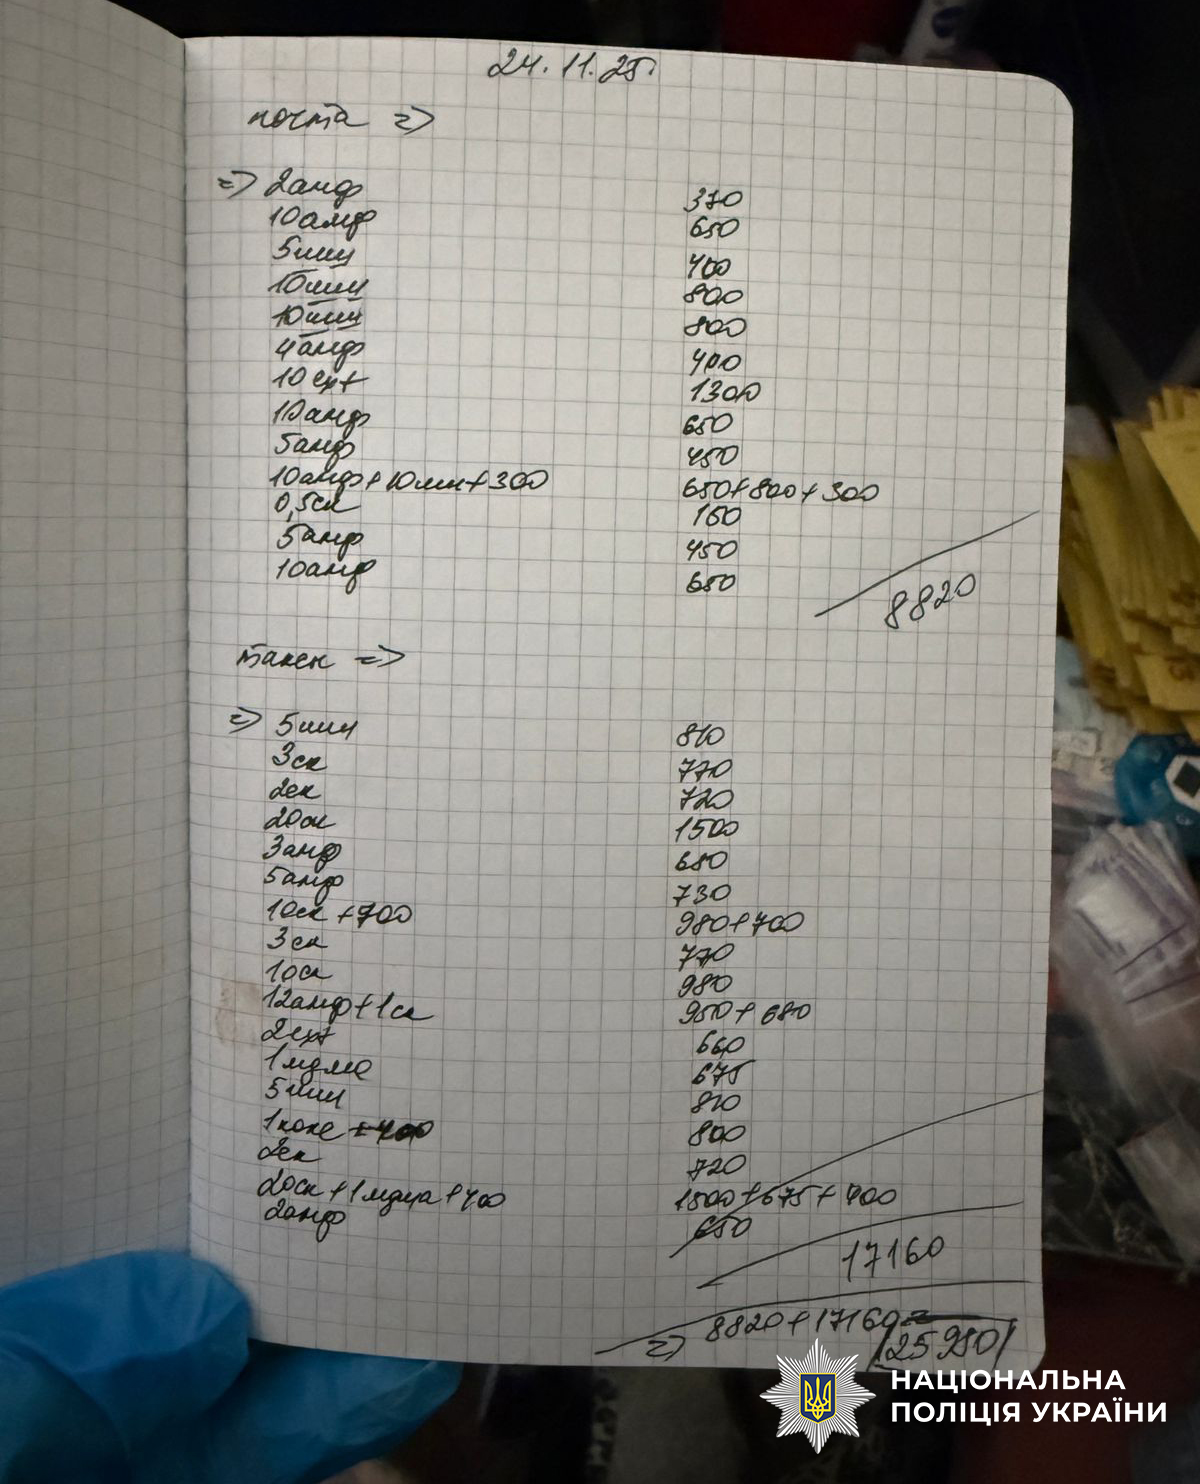 24.11.25.
почта =>
=> 2амф 370
10амф 650
5миц 400
10миц 800
10миц 800
4амф 400
10ext 1300
10амф 650
5амф 450
10амф+10мн+300 650+800+300
0,5ск 150
5амф 450
10амф 650
8820
=>
=> 5миц 810
3ск 770
2ск 720
20ск 1500
3амф 680
5амф 730
10ск +700 980+700
3ск 770
10ск 980
12амф+1ск 950+680
2ext 660
1мдма 675
5миц 810
1коке 800
2ск 720
20ск+1мдма+400 1500+675+400
2амф 650
17160
=> 8820+17160=
25980
НАЦІОНАЛЬНА
ПОЛІЦІЯ УКРАЇНИ